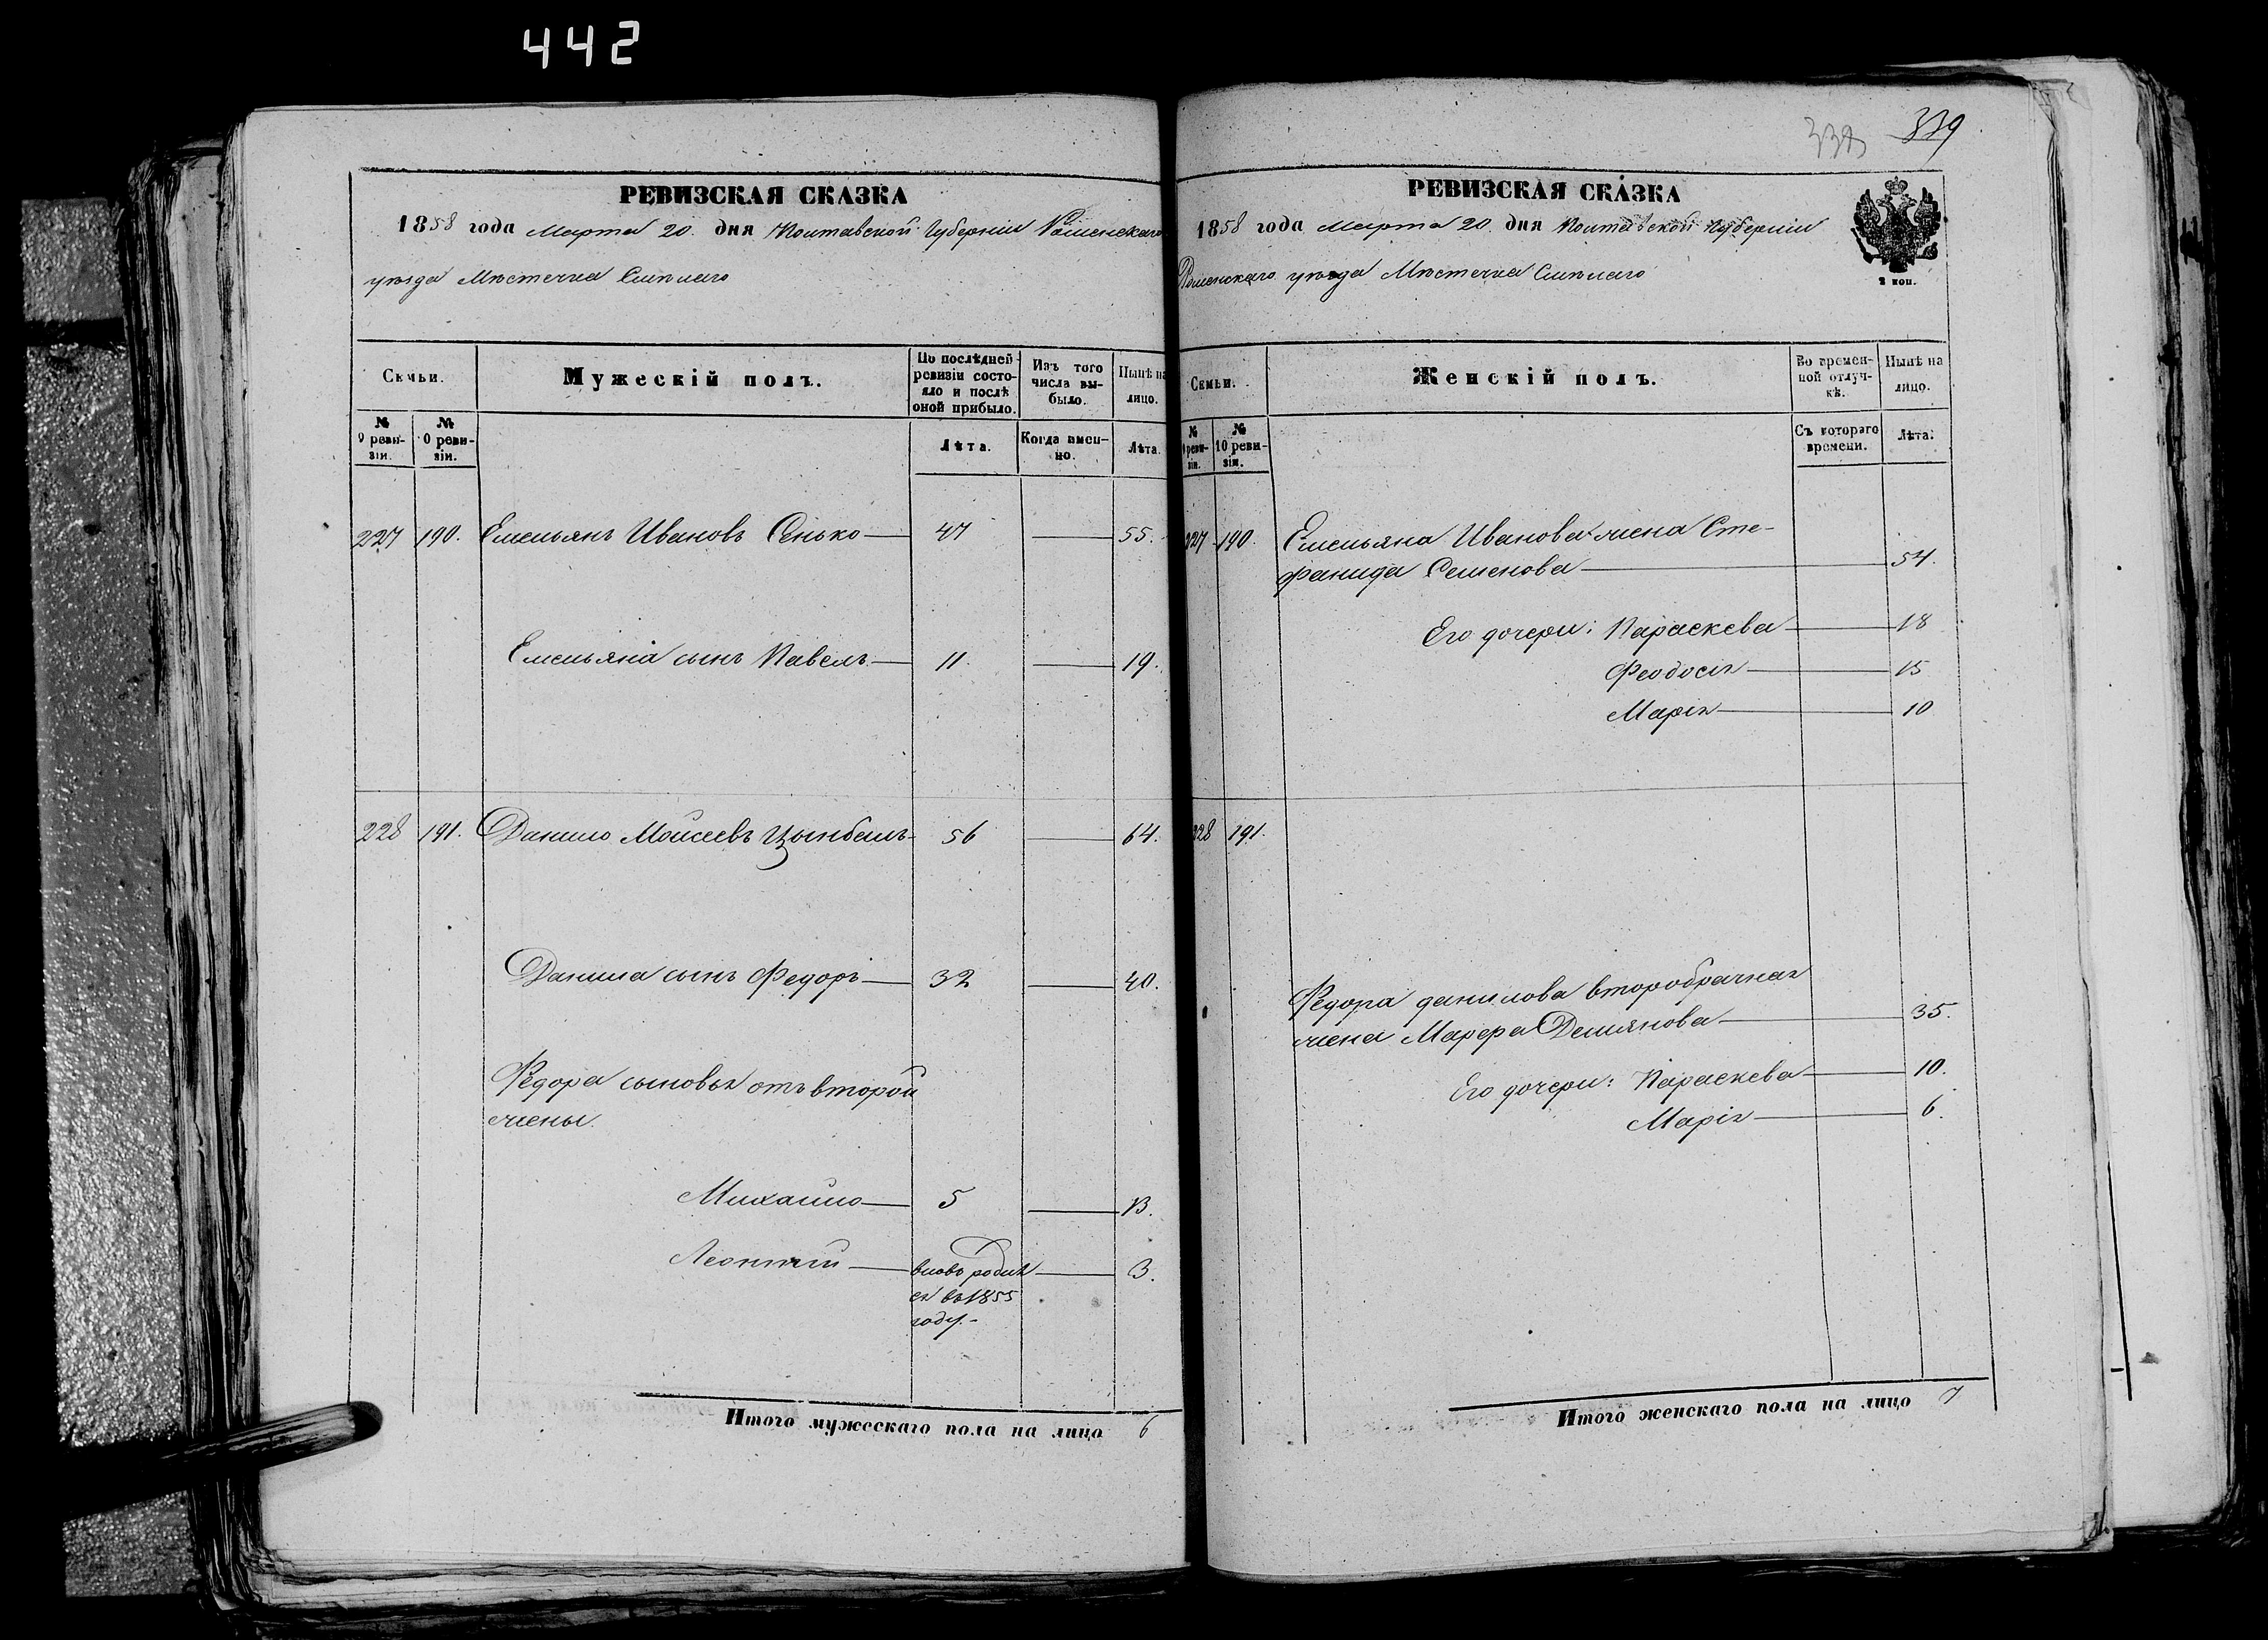 442
РЕВИЗСКАЯ СКАЗКА
1858 года Марта 20. дня Полтавской Губерніи Роменскаго
уѣзда Мѣстечка Смѣлаго
Семьи.
Мужескій полъ.
По послѣдней ревизіи состояло и послѣ оной прибыло.
Изъ того числа выбыло.
Нынѣ на лицо.
№ 9 ревизіи.
№ 0 ревизіи.
Лѣта.
Когда именно.
Лѣта.
227 190. Емельянъ Ивановъ Сенько 47 55.
Емельяна сынъ Павелъ 11. 19.
228 191. Данило Мойсеевъ Цымбалъ 56 64.
Данила сынъ Федоръ 32 40.
Федора сыновья отъ второй
жены.
Михайло 5 13.
Леонтій вновь родил 3.
ся въ 1855
году.
Итого мужескаго пола на лицо 6
339
РЕВИЗСКАЯ СКАЗКА
1858 года Марта 20. дня Полтавской Губерніи
Роменскаго уѣзда Мѣстечка Смѣлаго
2 коп.
Семьи.
Женскій полъ.
Во временной отлучкѣ.
Нынѣ на лицо.
№ ревизіи.
№ 10 ревизіи.
Съ котораго времени.
Лѣта.
227 190. Емельяна Иванова жена Сте-
фанида Семенова 54.
Его дочери: Параскева 18
Феодосія 15
Марія 10
228 191.
Федора данилова второбрачная
жена Марфа Демянова 35.
Его дочери: Параскева 10.
Марія 6.
Итого женскаго пола на лицо 7